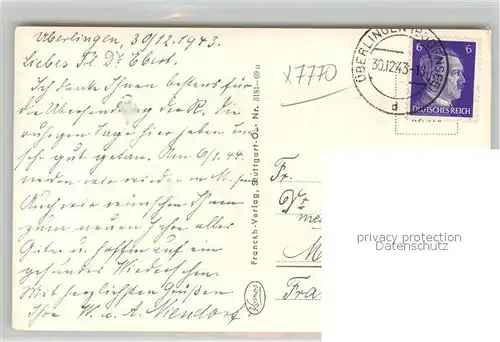 Überlingen, 30/12.1943.
Liebes Frl. Dr. Ebert.
Ich danke Ihnen bestens für
die Übersendung der R. Die
ruhigen Tage hier haben uns
sehr gut getan. Am 6/1.44.
werden wir wieder in M. sein
Auch wir wünschen Ihnen
zum neuen Jahre alles
Gute u. hoffen auf ein
gesundes Wiedersehen.
Mit herzlichsten Grüßen
Ihre W. u. A. Niendorf.
x7770
Franckh-Verlag, Stuttgart-O · Nr. 3181—69 u
Kosmos
ÜBERLINGEN (BODENSEE)
30.12.43
d
6 6
DEUTSCHES REICH
Fr.
Dr.
med
M
Fra
privacy protection
Datenschutz